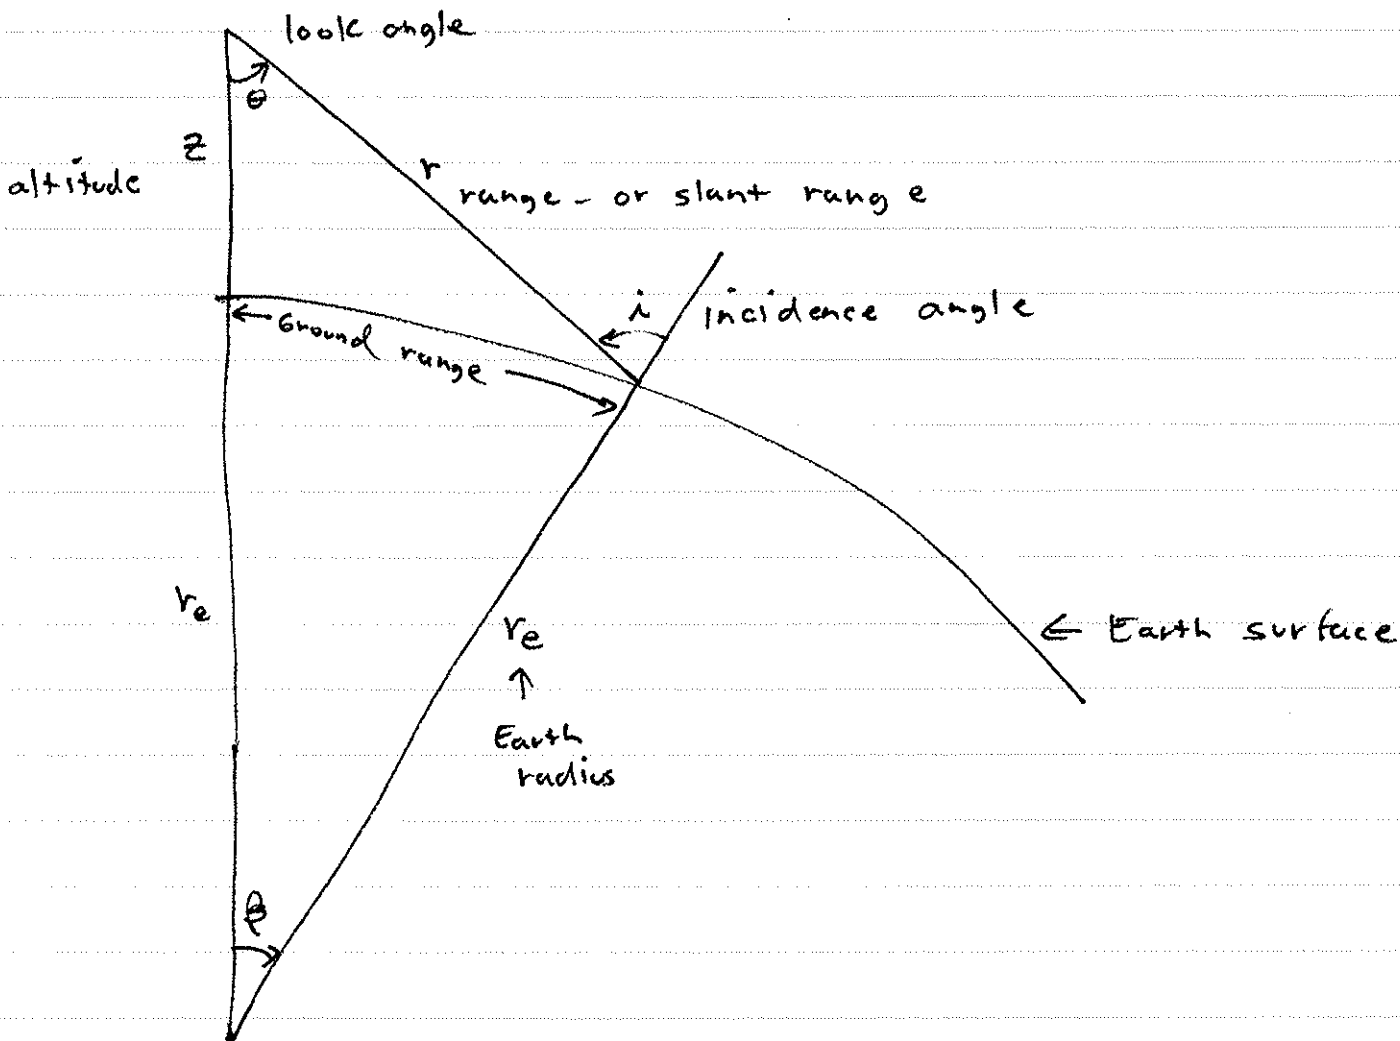 look angle
θ
z
altitude
r
range - or slant range
i incidence angle
Ground range
re
re
← Earth surface
↑
Earth
radius
β